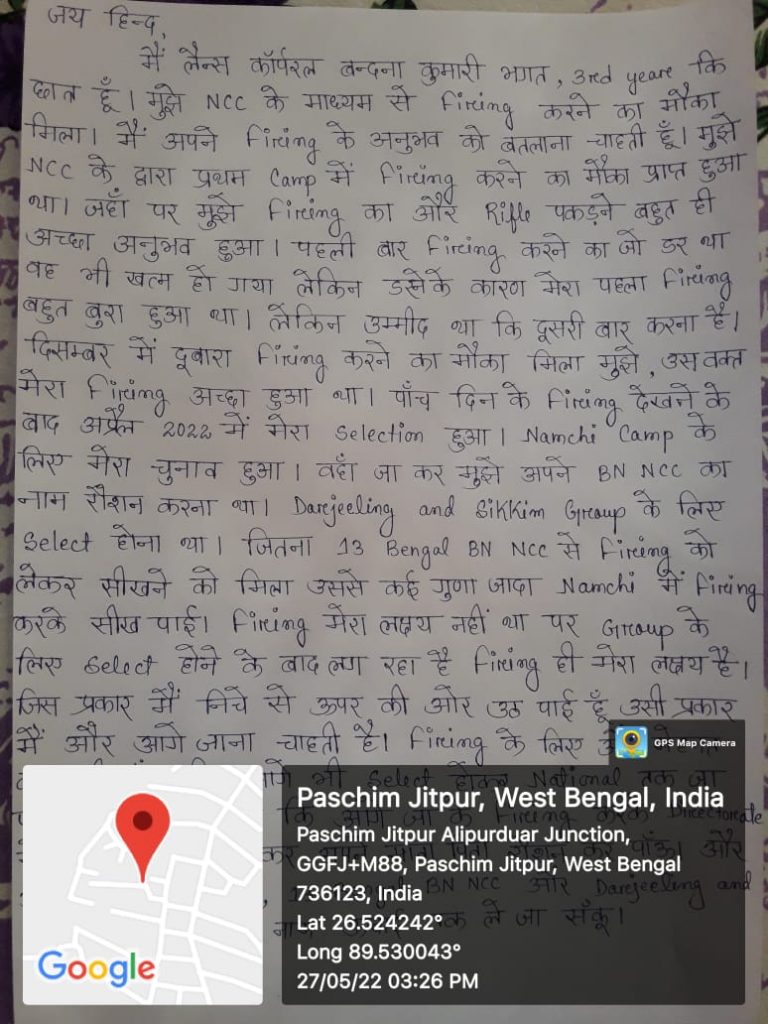 जय हिन्द,
मैं लैन्स कॉर्परल बन्दना कुमारी भगत, 3rd yeare कि
छात्र हूँ। मुझे NCC के माध्यम से Fireing करने का मौका
मिला। मैं अपने Fireing के अनुभव को बतलाना चाहती हूँ। मुझे
NCC के द्वारा प्रथम Camp में Fireing करने का मौका प्राप्त हुआ
था। जहाँ पर मुझे Fireing का और Rifle पकड़ने बहुत ही
अच्छा अनुभव हुआ। पहली बार Fireing करने का जो डर था
वह भी खत्म हो गया लेकिन डरनेके कारण मेरा पहला Fireing
बहुत बुरा हुआ था। लेकिन उम्मीद था कि दूसरी बार करना है।
दिसम्बर में दूबारा Fireing करने का मौका मिला मुझे, उस वक्त
मेरा Fireing अच्छा हुआ था। पाँच दिन के Fireing देखने के
बाद अप्रैल 2022 में मेरा Selection हुआ। Namchi Camp के
लिए मेरा चुनाव हुआ। वहाँ जा कर मुझे अपने BN NCC का
नाम रौशन करना था। Darejeeling and SikKim Group के लिए
Select होना था। जितना 13 Bengal BN NCC से Fireing को
लेकर सीखने को मिला उससे कई गुणा जादा Namchi में Fireing
करके सीख पाई। Fireing मेरा लक्ष्य नहीं था पर Group के
लिए Select होने के बाद लग रहा है Fireing ही मेरा लक्ष्य है।
जिस प्रकार मैं निचे से ऊपर की ओर उठ पाई हूँ उसी प्रकार
मैं और आगे जाना चाहती है। Fireing के लिए
भी Select होकर National तक जा
कि आगे जा के Fireing करके Directorate
कर अपने माता पिता रौशन कर पाँऊ। और
BN NCC और Darejeeling and
नाम तक ले जा सँकू।
GPS Map Camera
Paschim Jitpur, West Bengal, India
Paschim Jitpur Alipurduar Junction,
GGFJ+M88, Paschim Jitpur, West Bengal
736123, India
Lat 26.524242°
Long 89.530043°
27/05/22 03:26 PM
Google